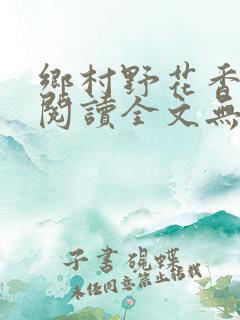 鄉村野花香
閱讀全文無
子書硯蝶
未任同意禁止轉載